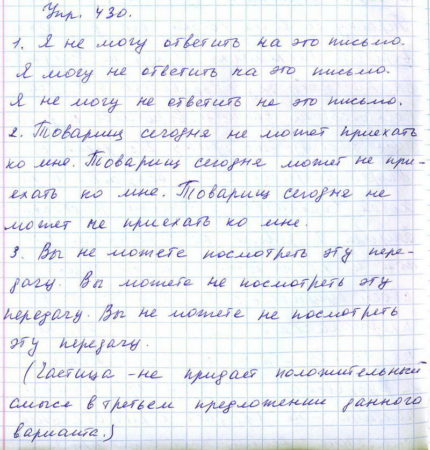 Упр. 430.
1. Я не могу ответить на это письмо.
Я могу не ответить на это письмо.
Я не могу не ответить на это письмо.
2. Товарищ сегодня не может приехать
ко мне. Товарищ сегодня может не при-
ехать ко мне. Товарищ сегодня не
может не приехать ко мне.
3. Вы не можете посмотреть эту пере-
дачу. Вы можете не посмотреть эту
передачу. Вы не можете не посмотреть
эту передачу.
(Частица -не придает положительный
смысл в третьем предложении данного
варианта.)